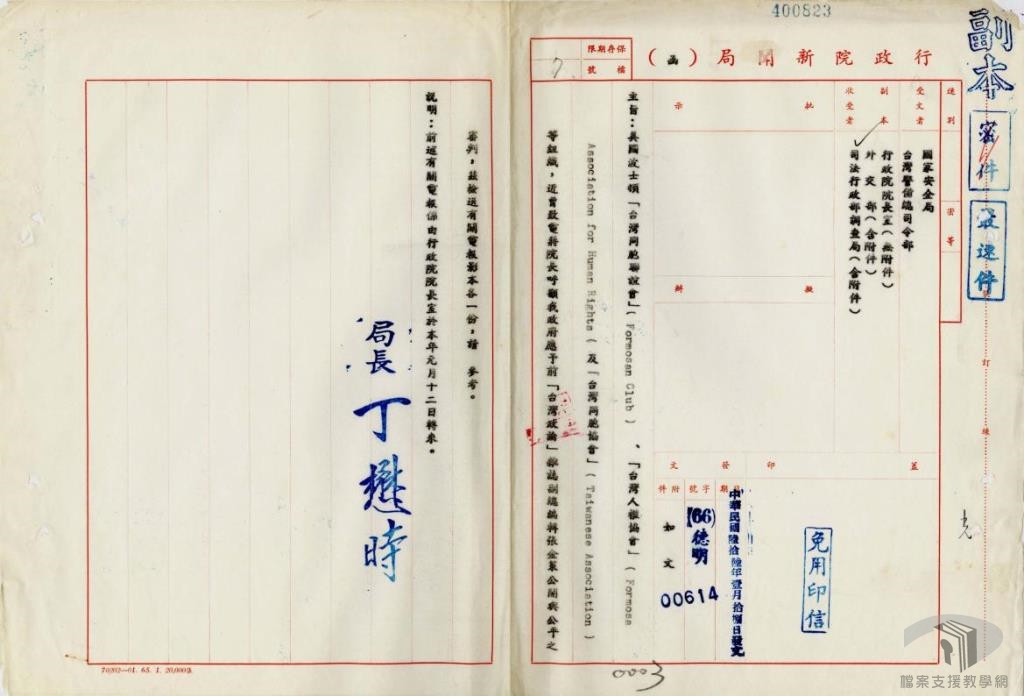 400823
副本
密件
最速件
行政院新聞局（函）
保存期限
檔號
7
速別
密等
受文者
國家安全局
台灣警備總司令部
副本收受者
行政院院長室（無附件）
外交部（含附件）
司法行政部調查局（含附件）
批示
擬辦
蓋印
發文
日期
中華民國陸拾陸年壹月拾捌日發文
字號
(66)德明
00614
附件
如文
免用印信
主旨：美國波士頓「台灣同胞聯誼會」( Formosan Club )、「台灣人權協會」( Formosa
Association for Human Rights ( 及「台灣同胞協會」( Taiwanese Association )
等組織，近曾致電蔣院長呼籲我政府應予前「台灣政論」雜誌副總編輯張金策公開與公平之
審判，茲檢送有關電報影本各一份，請　參考。
說明：前述有關電報係由行政院院長室於本年元月十二日轉來。
局長 丁懋時
訂線
70202—01. 65. 1. 20,000張
0003
檔案支援教學網